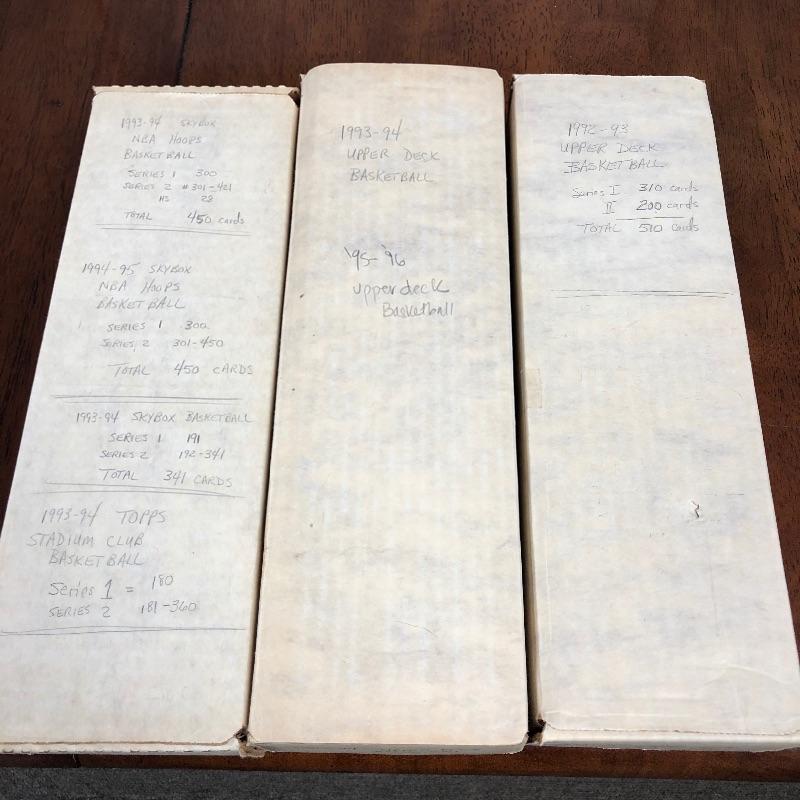 1993-94 SKYBOX
NBA HOOPS
BASKETBALL
SERIES 1 300
SERIES 2 #301-421
HS 28
TOTAL 450 cards
1994-95 SKYBOX
NBA HOOPS
BASKETBALL
SERIES 1 300
SERIES 2 301-450
TOTAL 450 CARDS
1993-94 SKYBOX BASKETBALL
SERIES 1 191
SERIES 2 192-341
TOTAL 341 CARDS
1993-94 TOPPS
STADIUM CLUB
BASKETBALL
Series 1 = 180
SERIES 2 181-360
1993-94
UPPER DECK
BASKETBALL
'95-'96
upper deck
Basketball
1992-93
UPPER DECK
BASKETBALL
Series I 310 cards
II 200 cards
TOTAL 510 cards